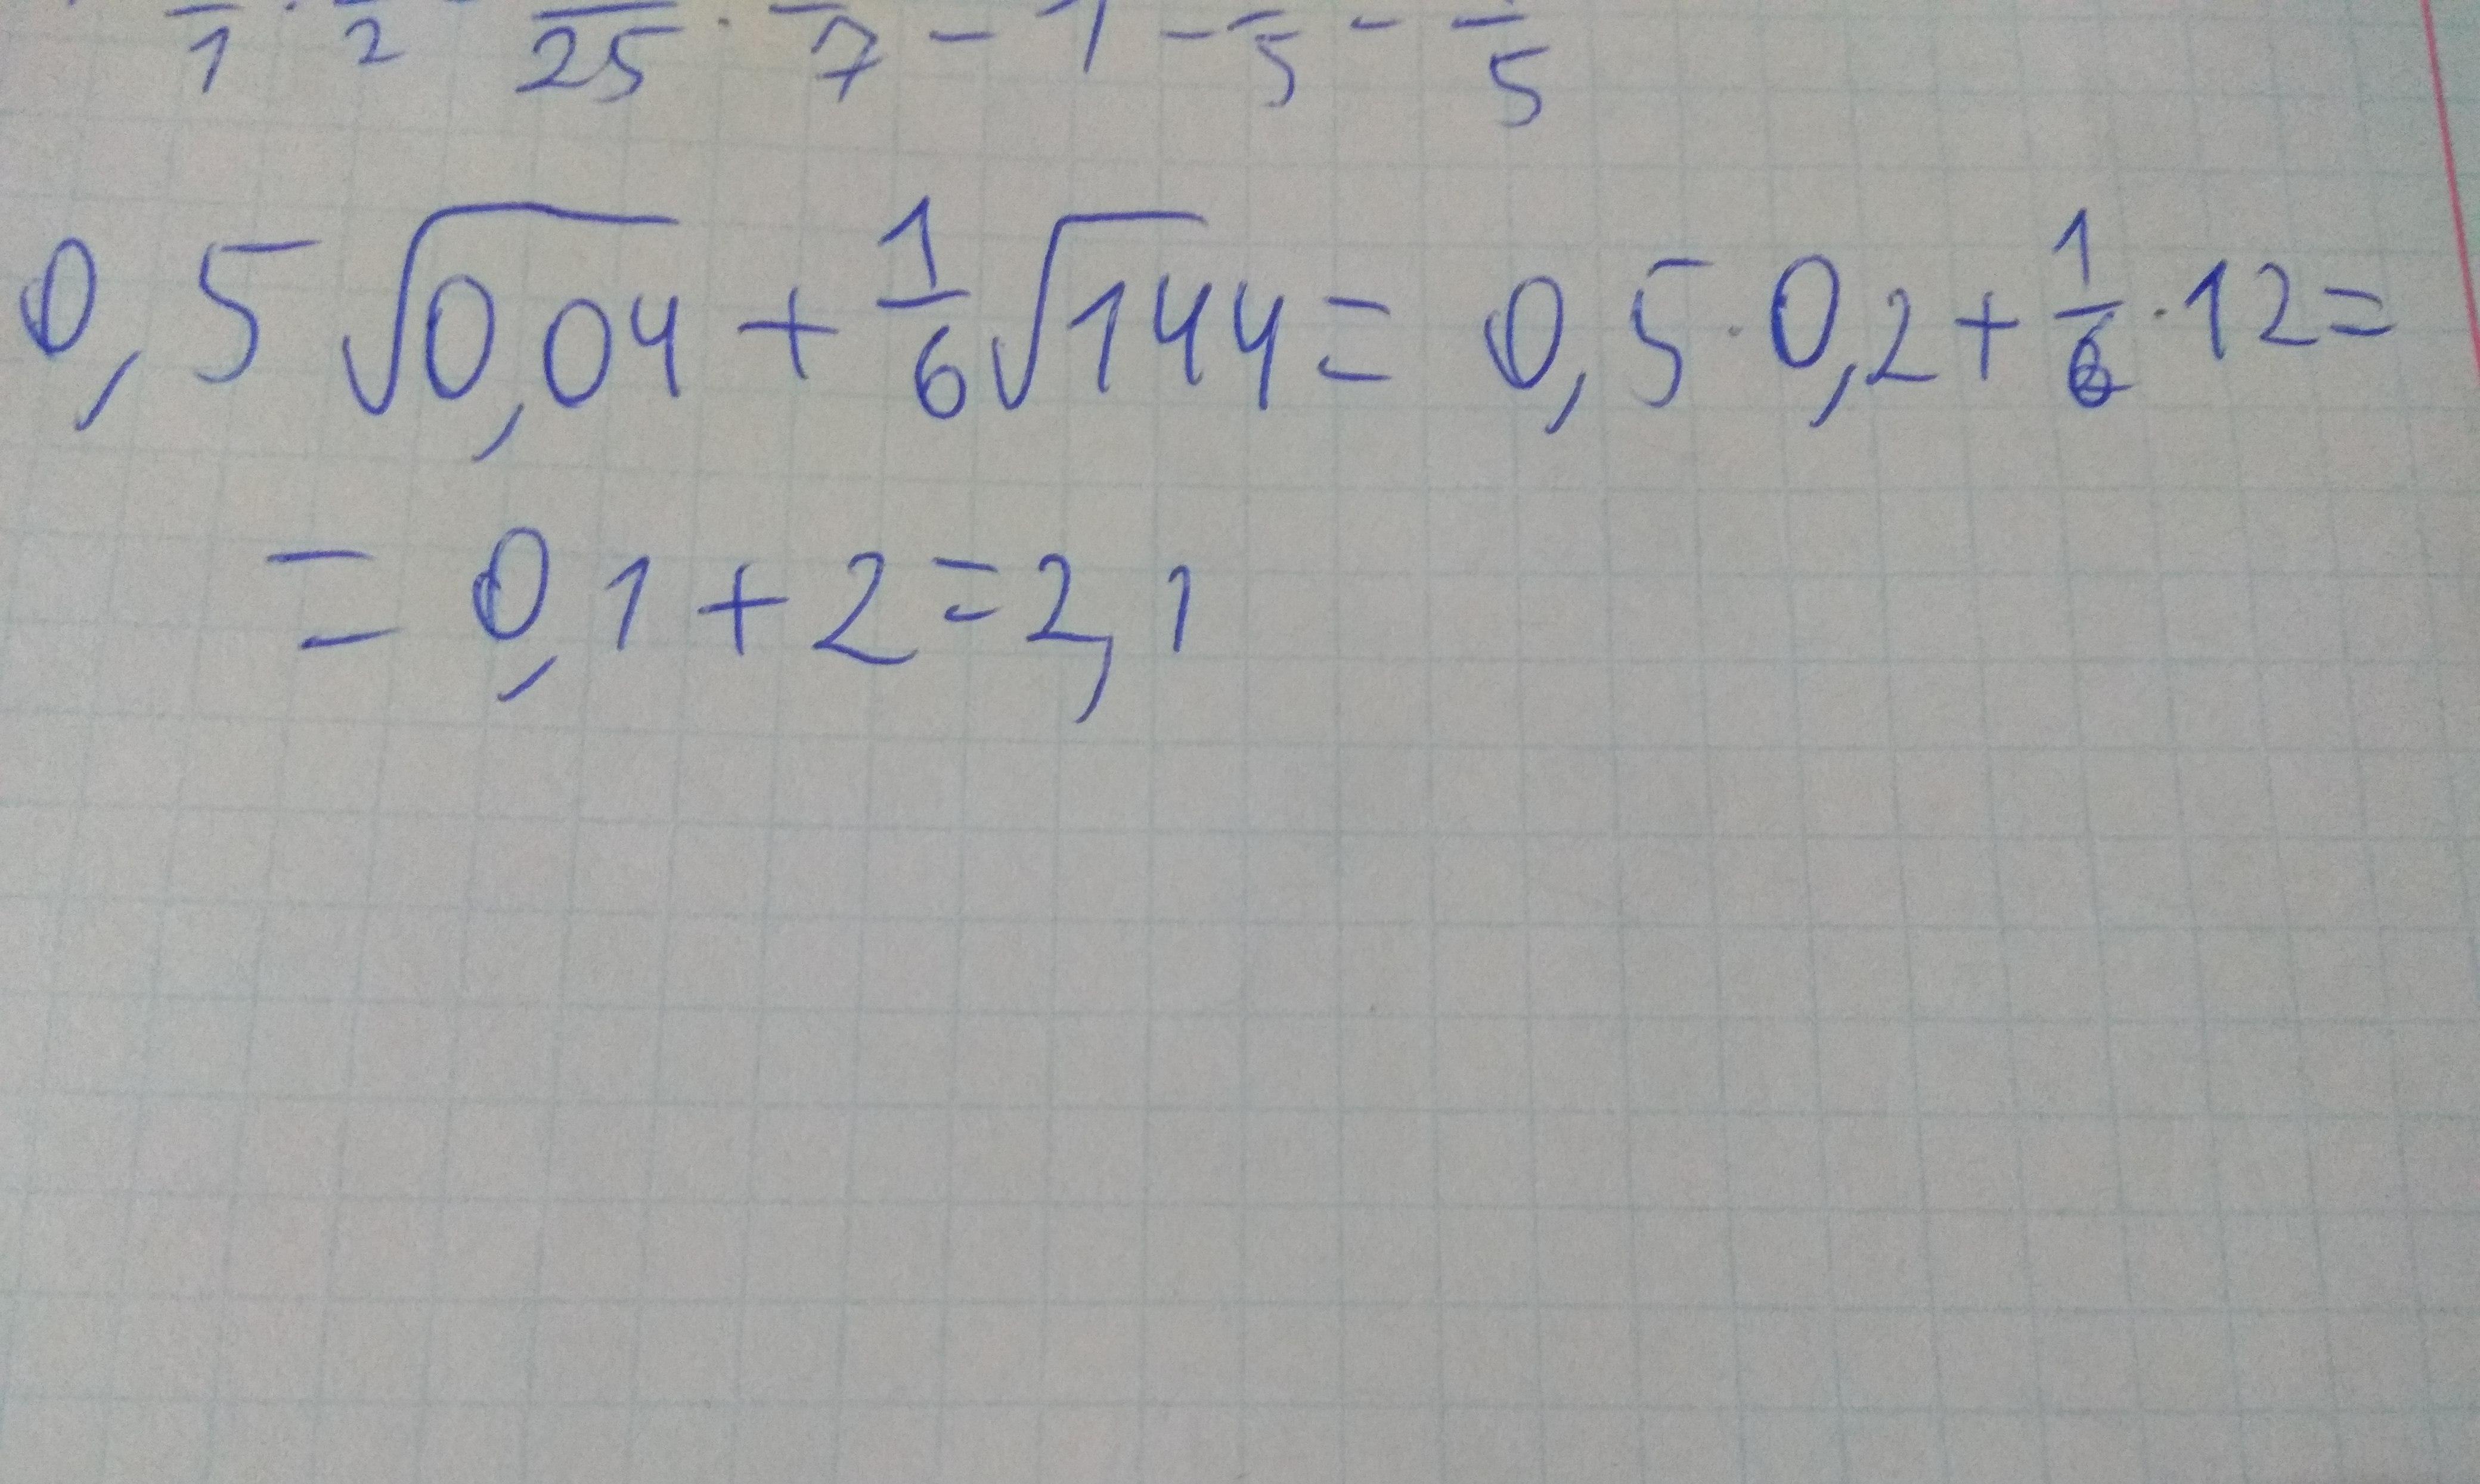 1 · 2 25 · 7 - 1 - 5 - 5
0,5√0,04 + 1/6√144 = 0,5 · 0,2 + 1/6 · 12 =
= 0,1 + 2 = 2,1